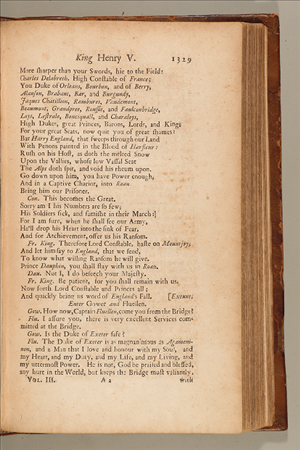 King Henry V. 1329
More sharper than your Swords, hie to the Field:
Charles Delabreth, High Constable of France;
You Duke of Orleans, Bourbon, and of Berry,
Alanson, Brabant, Bar, and Burgundy,
Jaques Chatillion, Rambures, Vandemont,
Beaumont, Grandpree, Roussie, and Faulconbridge,
Loys, Lestrale, Bouciquall, and Charaloys,
High Dukes, great Princes, Barons, Lords, and Kings
For your great Seats, now quit you of great shames:
Bar Harry England, that sweeps through our Land
With Penons painted in the Blood of Harfleur:
Rush on his Host, as doth the melted Snow
Upon the Vallies, whose low Vassal Seat
The Alps doth spit, and void his rheum upon.
Go down upon him, you have Power enough,
And in a Captive Chariot, into Roan
Bring him our Prisoner.
Con. This becomes the Great.
Sorry am I his Numbers are so few;
His Soldiers sick, and famisht in their March:
For I am sure, when he shall see our Army,
He'll drop his Heart into the sink of Fear,
And for Atchievement, offer us his Ransom.
Fr. King. Therefore Lord Constable, haste on Mountjoy,
And let him say to England, that we send,
To know what willing Ransom he will give.
Prince Dauphin, you shall stay with us in Roan.
Dau. Not so, I do beseech your Majesty.
Fr. King. Be patient, for you shall remain with us.
Now forth Lord Constable and Princes all;
And quickly bring us word of England's Fall. [Exeunt.
Enter Gower and Fluellen.
Gow. How now, Captain Fluellen, come you from the Bridge?
Flu. I assure you, there is very excellent Services com-
mitted at the Bridge.
Gow. Is the Duke of Exeter safe?
Flu. The Duke of Exeter is as magnanimous as Agamem-
non, and a Man that I love and honour with my Soul, and
my Heart, and my Duty, and my Life, and my Living, and
my uttermost Power. He is not, God be praised and blessed,
any hurt in the World, but keeps the Bridge most valiantly,
Vol. III. A a with